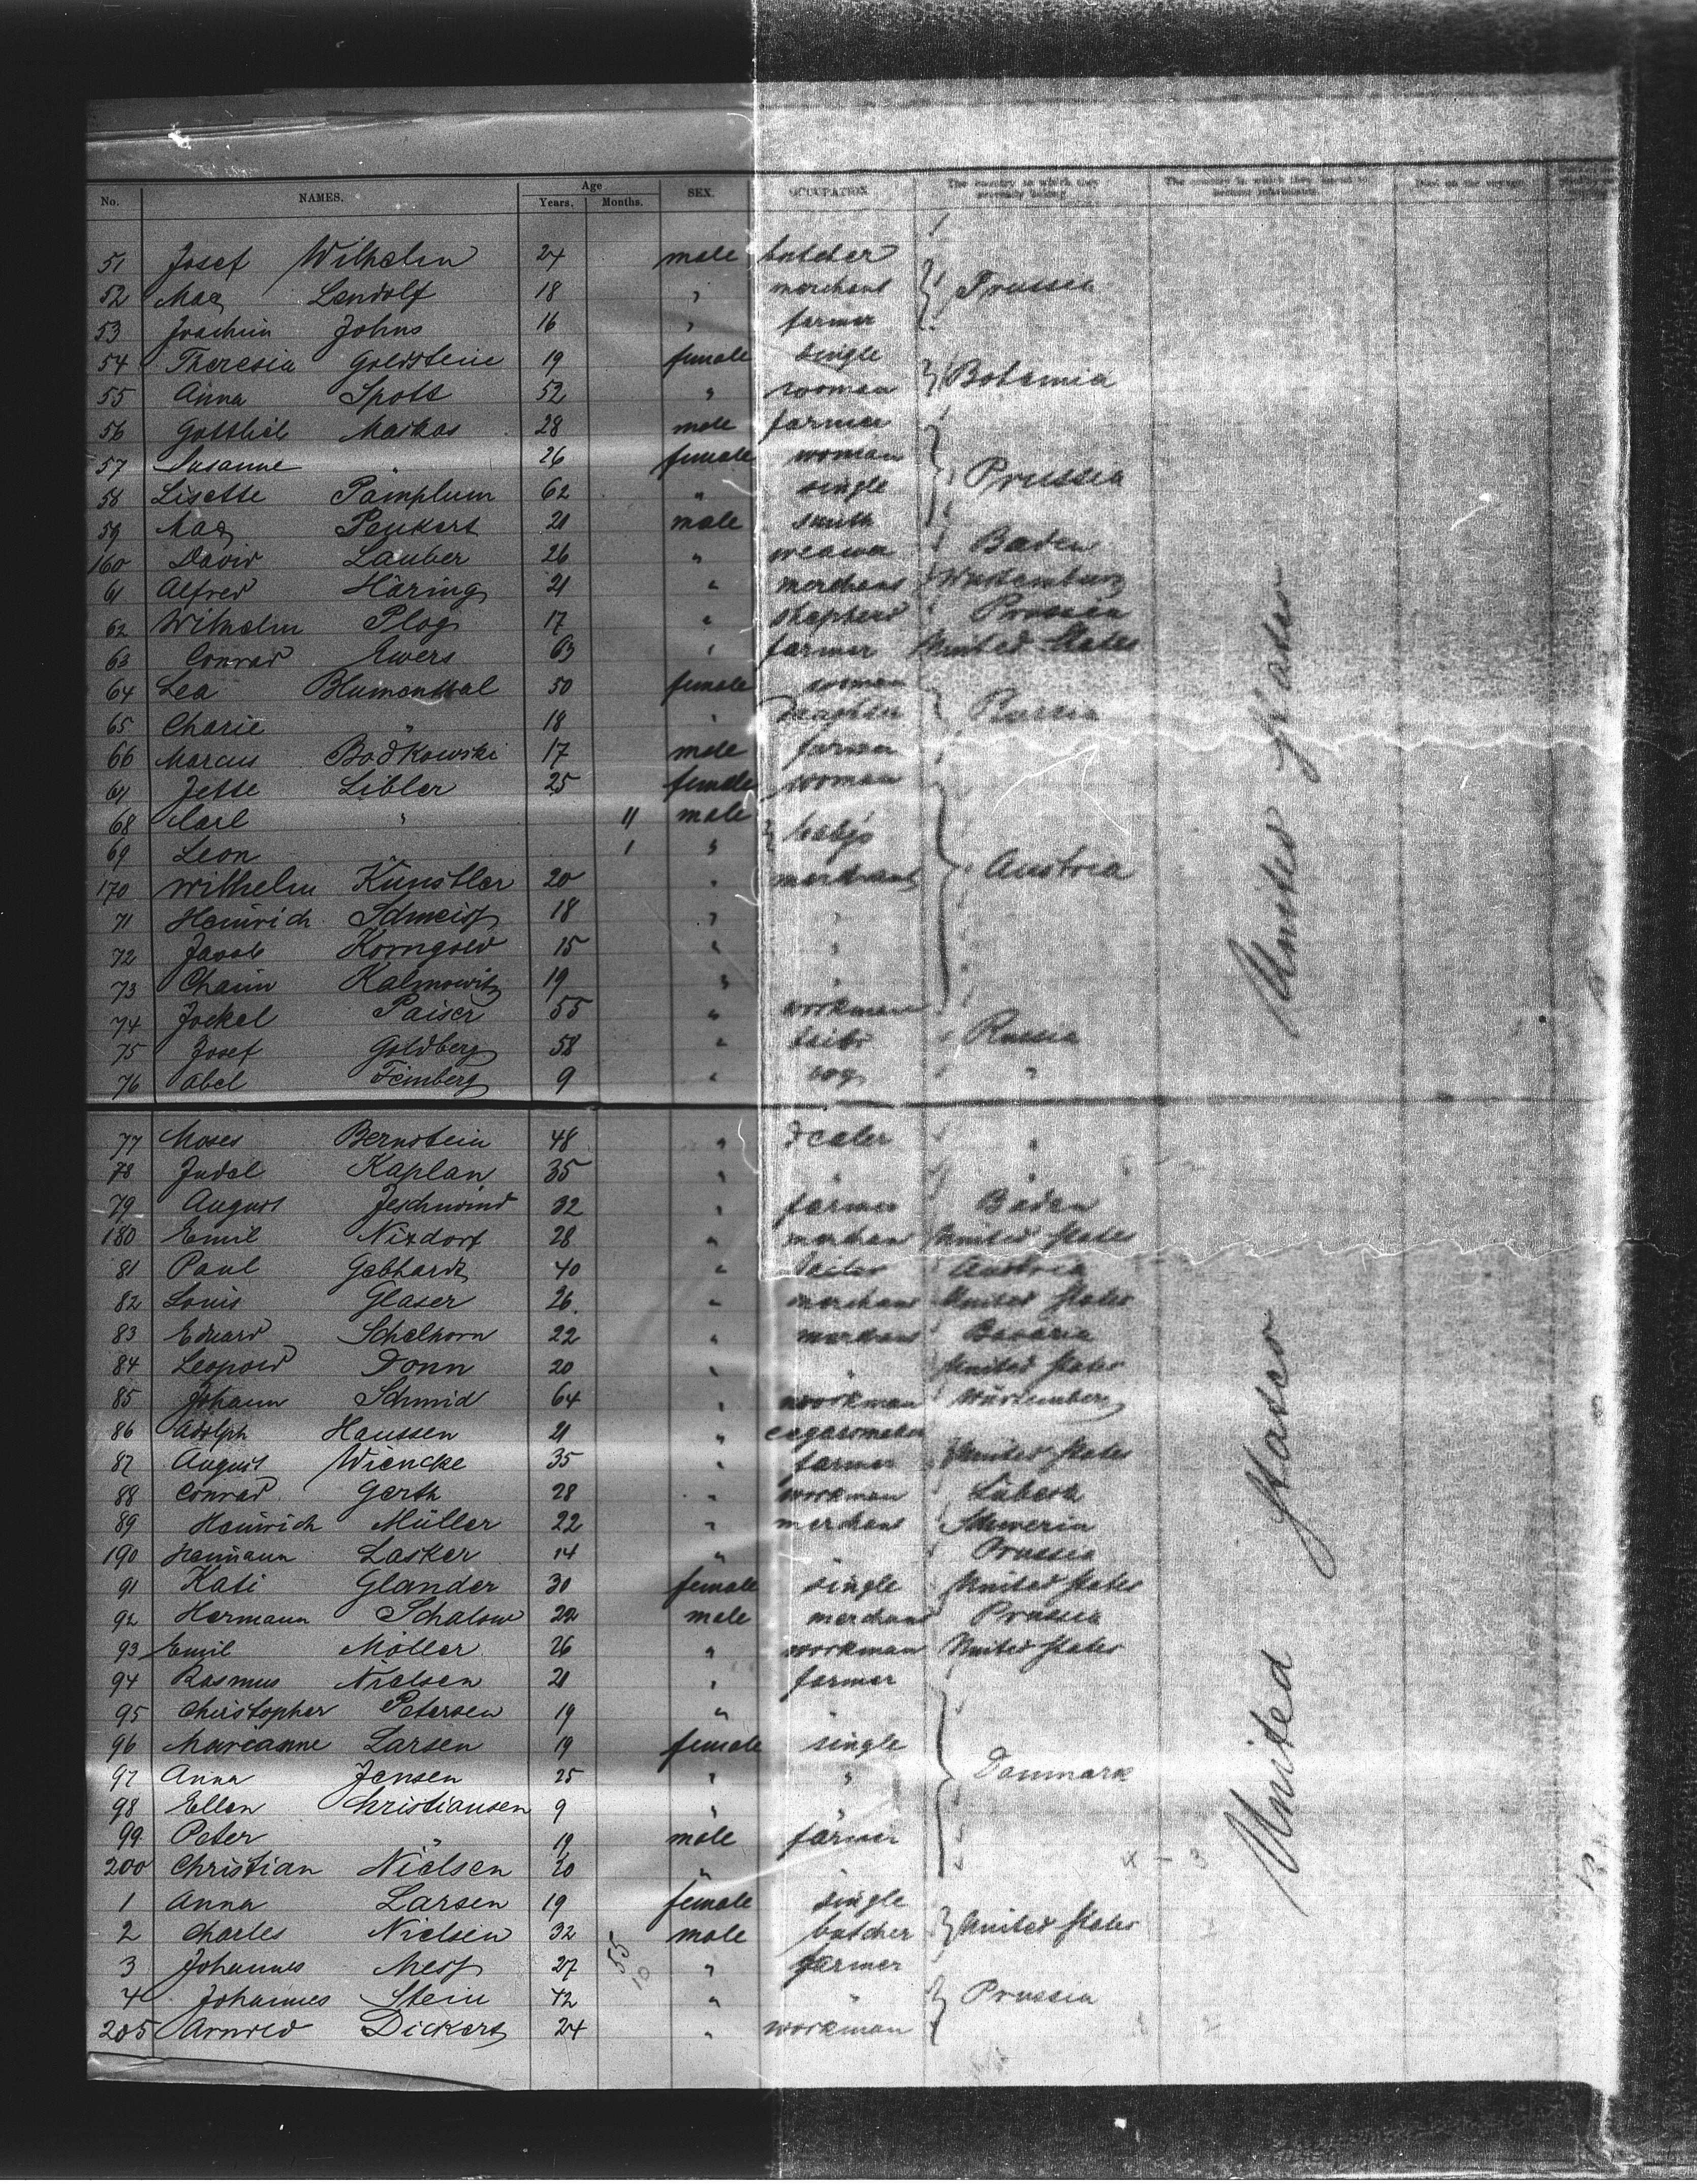 No. NAMES. Age Years. Months. SEX. OCCUPATION The country to which they severally belong The country in which they intend to become inhabitants Died on the voyage
51 Josef Wilhelm 24 male butcher
52 Max Landolf 18 " merchant Prussia
53 Joachim Johns 16 " farmer
54 Theresia Goldstein 19 female single
55 Anna Spott 52 " woman Bohemia
56 Gottlieb Markos 28 male farmer
57 Susanne " 26 female woman
58 Lisette Pamplum 62 " single Prussia
59 Max Peukert 21 male smith
160 David Lauber 26 " weawer Baden
61 Alfred Häring 21 " merchant Wurtemburg
62 Wilhelm Plog 17 " shepherd Prussia
63 Conrad Ewers 63 " farmer United States
64 Lea Blumenthal 50 female woman
65 Charie " 18 " daughter Russia
66 Marcus Bodkowski 17 male farmer
67 Jette Libler 25 female woman
68 Carl " 11 male
69 Leon 1 " babys
170 Wilhelm Künstler 20 " merchant Austria
71 Heinrich 18 " "
72 Jacob Korngold 15 " "
73 Chaim Kalmowitz 19 " "
74 Jockel Paiser 55 " workman
75 Josef Goldberg 58 " Russia
76 Abel Feinberg 9 " "
77 Moses Bernstein 48 " dealer "
78 Judel Kaplan 35 " " "
79 August Jeschwind 32 " farmer Baden
180 Emil Nixdorf 28 " merchant United States
81 Paul Gebhardt 40 " tailor Austria
82 Louis Glaser 26 " merchant United States
83 Eduard Schelhorn 22 " merchant Bavaria
84 Leopold Donn 20 " " United States
85 Johann Schmid 64 " workman Würtemberg
86 Adolph Haussen 21 "
87 August Wiencke 35 " farmer United States
88 Conrad Gerth 28 " workman Lübeck
89 Heinrich Müller 22 " merchant Schwerin
190 Hermann Lasker 14 " Prussia
91 Kati Glander 30 female single United States
92 Hermann Schalow 22 male merchant Prussia
93 Emil Möller 26 " workman United States
94 Rasmus Nielsen 21 " farmer
95 Christopher Petersen 19 " "
96 Marianne Larsen 19 female single
97 Anna Jensen 25 " " Danmark
98 Ellen Christiansen 9 " "
99 Peter " 19 male farmer
200 Christian Nielsen 20 "
1 Anna Larsen 19 female single
2 Charles Nielsen 32 male butcher United States
3 Johannes 27 " farmer
4 Johannes Stein 42 " " Prussia
205 Arnold Dickert 24 " workman
United States
United States